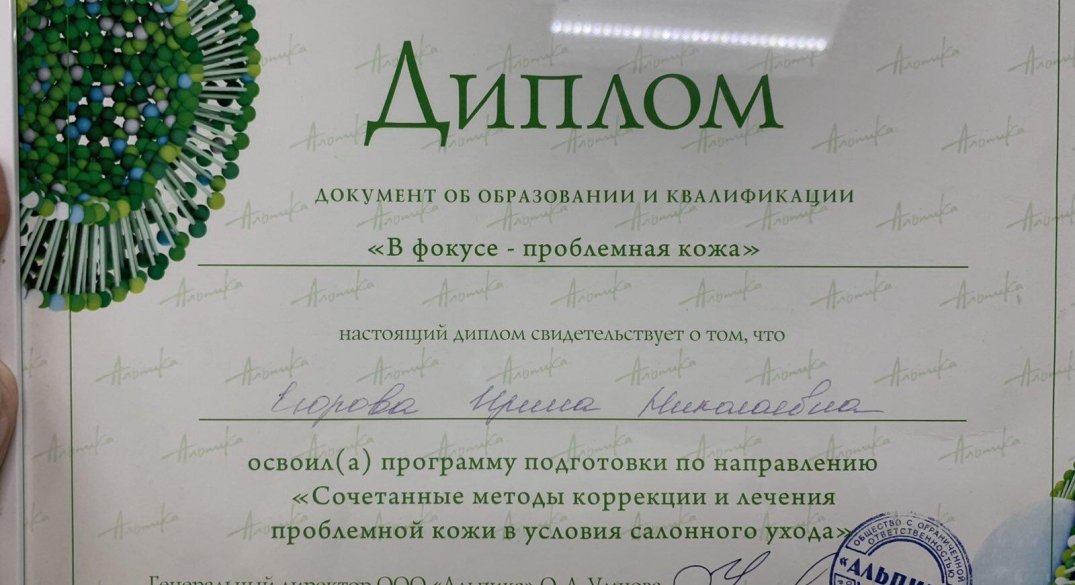 Диплом
ДОКУМЕНТ ОБ ОБРАЗОВАНИИ И КВАЛИФИКАЦИИ
«В фокусе - проблемная кожа»
настоящий диплом свидетельствует о том, что
Егорова Ирина Николаевна
освоил(а) программу подготовки по направлению
«Сочетанные методы коррекции и лечения
проблемной кожи в условия салонного ухода»
ОБЩЕСТВО С ОГРАНИЧЕННОЙ
ОТВЕТСТВЕННОСТЬЮ
Генеральный директор ООО «Альпика» О.А.